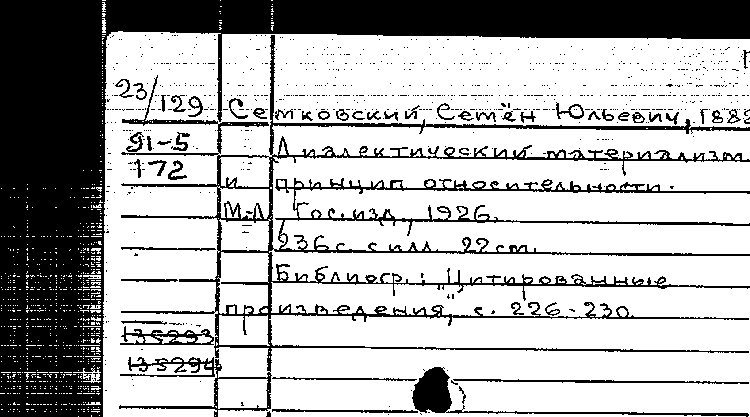 23/129 Семковский, Семён Юльевич, 1882
91-5 Диалектический материализм
172 и принцип относительности.
М.-Л., Гос. изд., 1926.
236 с. с илл. 22 cm.
Библиогр.: "Цитированные
произведения", с. 226-230.
135293
135294